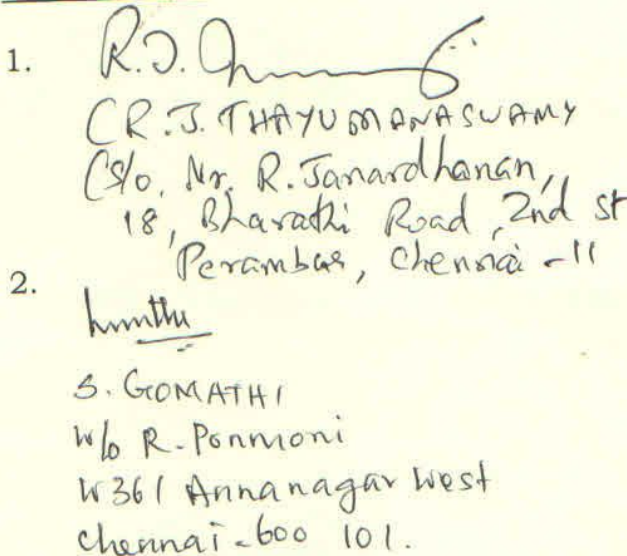 1.
R.J.
(R.J. THAYUMANASWAMY
(S/o. Mr. R. Janardhanan,
18, Bharathi Road, 2nd St
Perambur, Chennai - 11
2.
S. GOMATHI
W/o R. Ponmoni
W 361 Annanagar West
Chennai - 600 101.